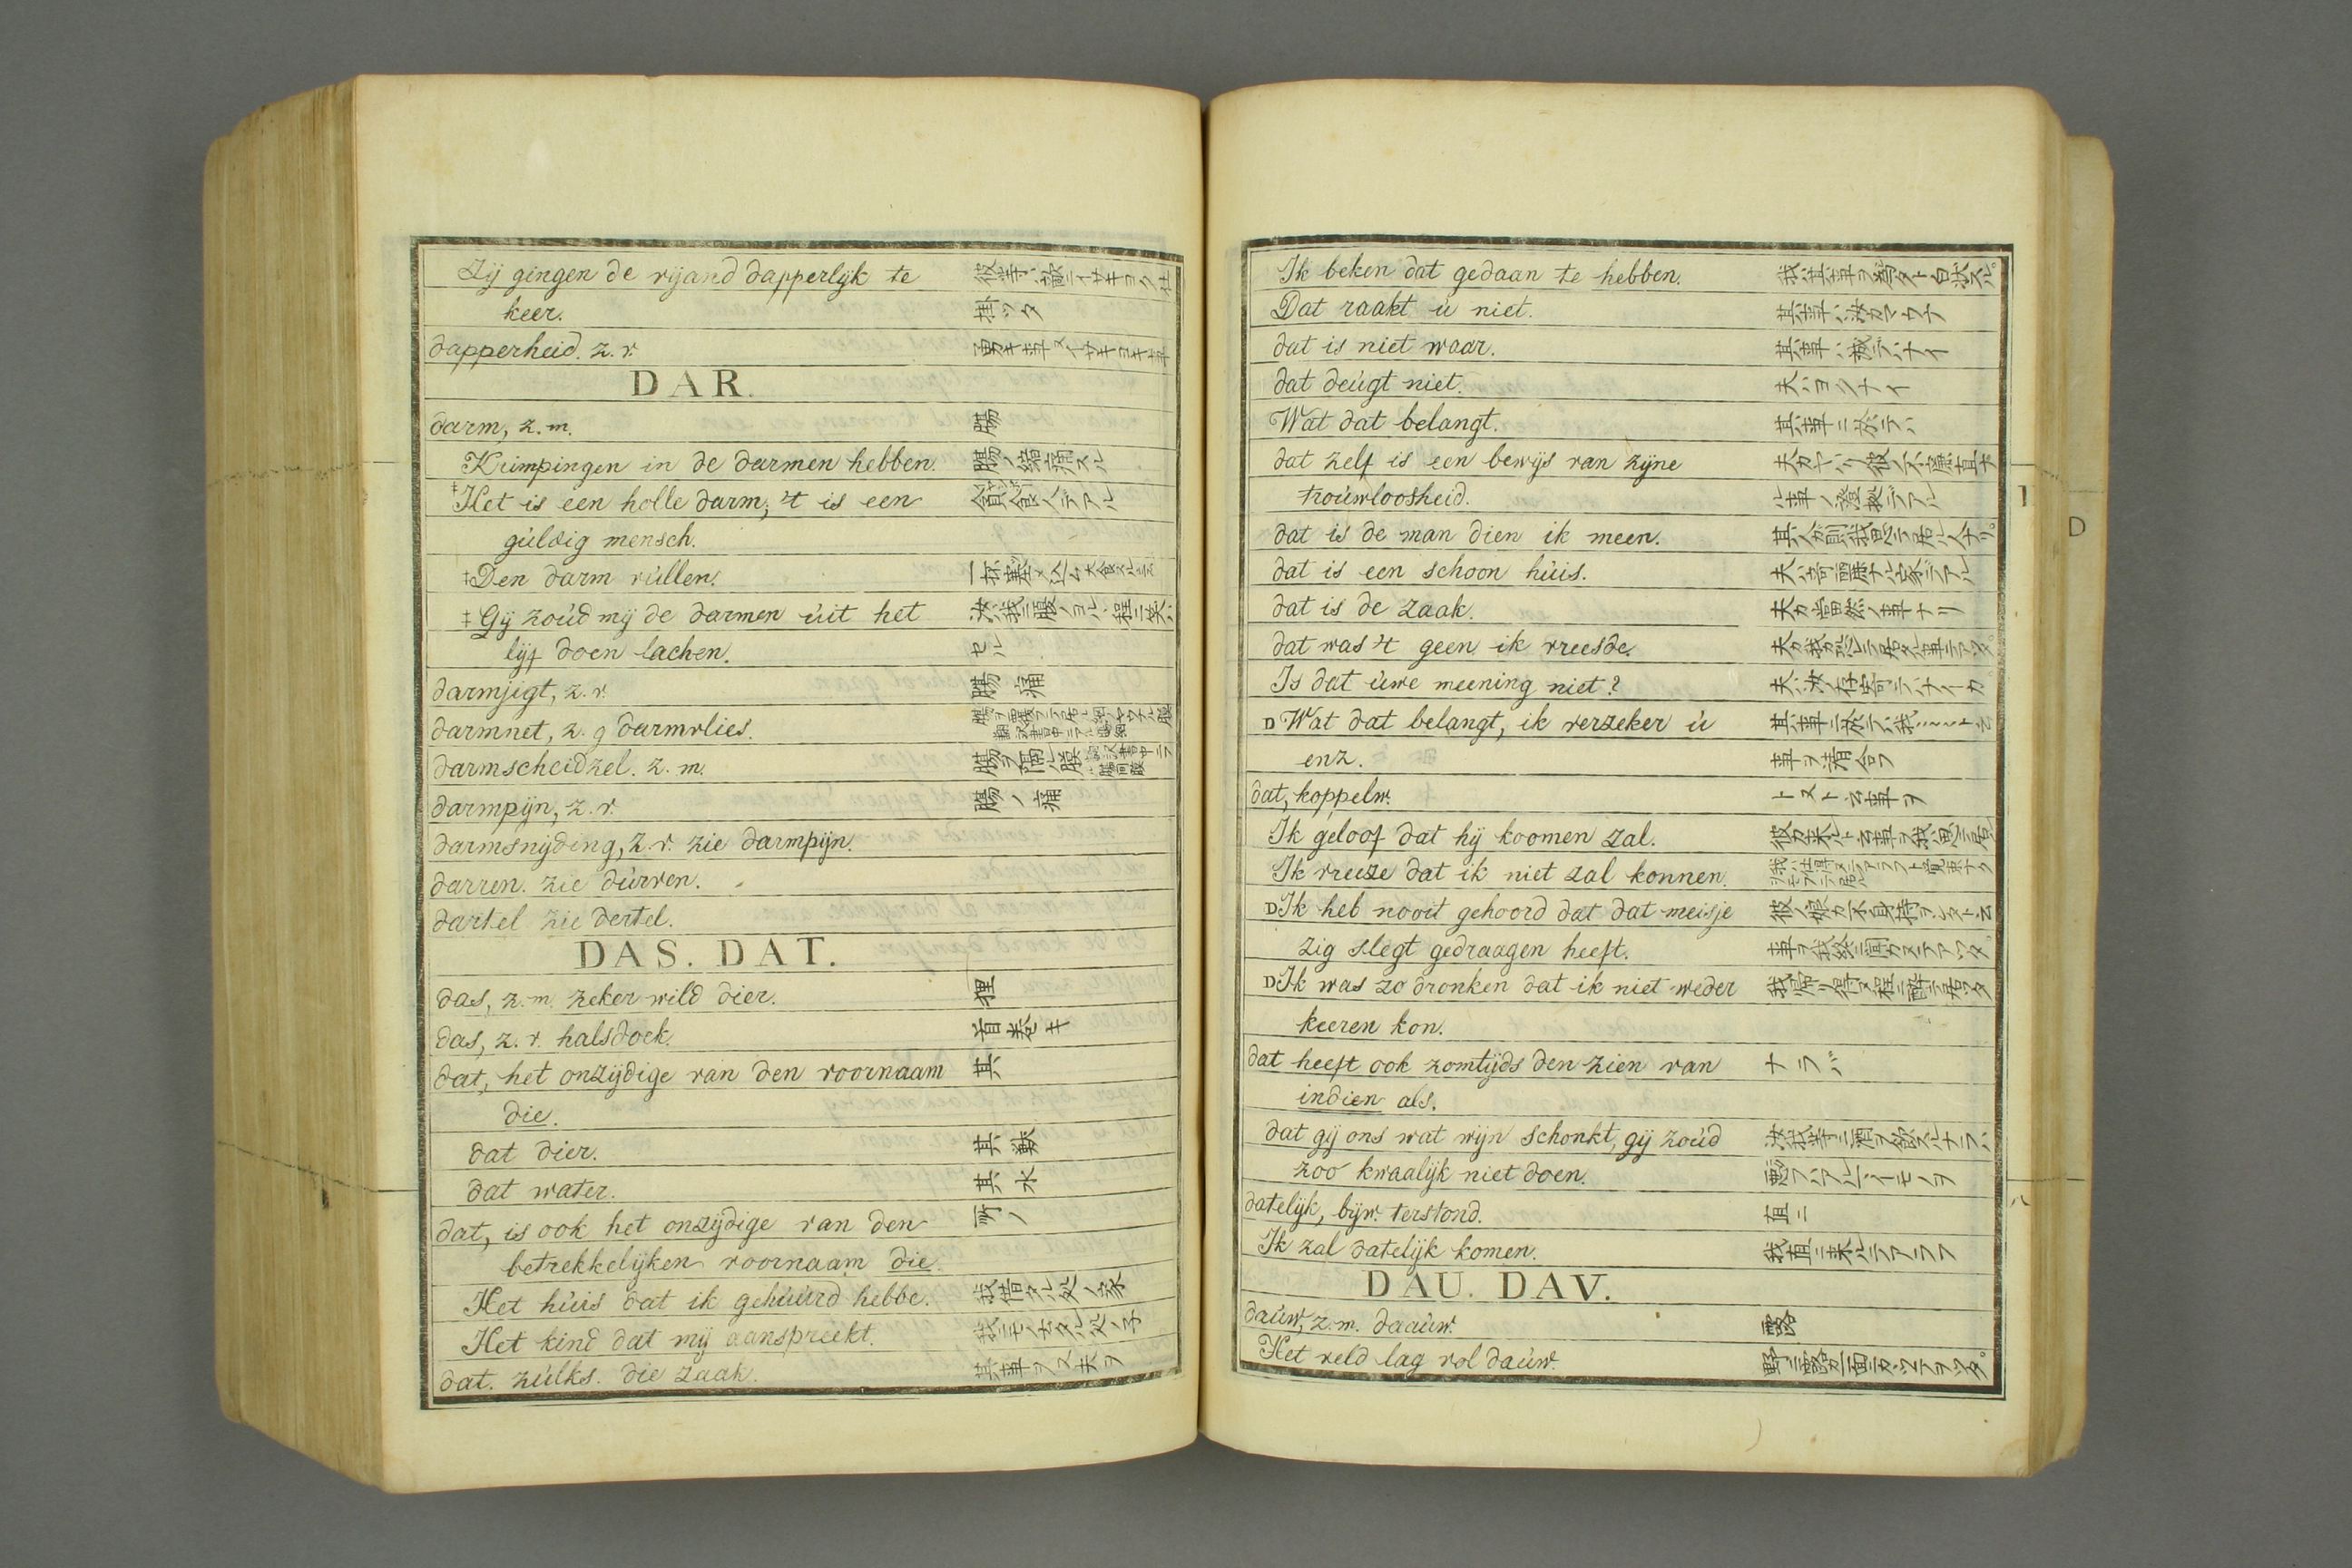 Zij gingen de vijand dapperlijk te 彼等ハ敵ニイサキヨク仕
keer. 掛ツタ
dapperheid. z. v. 勇キ事 又イサキヨキ事
DAR.
darm, z. m. 腸
Krimpingen in de darmen hebben. 腸ノ結痛スル
‡Het is een holle darm; 't is een 貪食人デアル
gúlzig mensch.
‡Den darm vúllen. 一杯塞メ込ム
‡Gÿ zoúd mÿ de darmen úit het 汝ハ我ニ腹ノヨレル程ニ笑ハ
lÿf doen lachen. セル
darmjigt, z. v. 腸痛
darmnet, z. g darmvlies.
darmscheidzel. z. m. 腸ヲ隔ル膜
darmpÿn, z. v. 腸ノ痛
darmsnÿding, z. v. zie darmpÿn.
darren. zie dúrven.
dartel zie dertel.
DAS. DAT.
das, z. m. zeker wild dier. 狸
das, z. v. halsdoek. 首巻キ
dat, het onzÿdige van den voornaam 其
die.
dat dier. 其獣
dat water. 其水
dat, is ook het onzÿdige van den 所ノ
betrekkelÿken voornaam die.
Het húis dat ik gehúúrd hebbe. 我借タル処ノ家
Het kind dat mÿ aanspreekt.
dat. zúlks. die zaak. 其事ヲ 又夫ヲ
Ik beken dat gedaan te hebben. 我ハ其事ヲ為タト白状スル。
Dat raakt ú niet. 其事ハ汝ガカマウナ
dat is niet waar. 其事ハ誠デハナイ
dat deúgt niet. 夫ハヨクナイ
Wat dat belangt. 其事ニ於テハ
dat zelf is een bewÿs van zÿne 夫ガヤハリ彼ノ不廉直ナ
troúwloosheid. ル事ノ證拠デアル
dat is de man dien ik meen. 其人ガ則我思テ居ル人ナリ。
dat is een schoon húis. 夫ハ奇麗ナル家デアル
dat is de zaak. 夫ガ当然ノ事ナリ
dat was 't geen ik vreesde. 夫ガ我ガ恐レテ居タル事デアツタ。
Is dat úwe meening niet? 夫ハ汝ノ存寄デハナイカ
D Wat dat belangt, ik verzeker ú 其事ニ於テハ我ハ
enz. 事ヲ請合フ
dat, koppelw. ト 又ト云事ヲ
Ik geloof dat hÿ koomen zal. 彼ガ来ルト云事ヲ我ハ思テ居ル
Ik vreeze dat ik niet zal konnen.
D Ik heb nooit gehoord dat dat meisje 彼ノ娘ガ不身持ヲシタト云
zig slegt gedraagen heeft. 事ヲ我終ニ聞カヌデアツタ。
D Ik was zo dronken dat ik niet weder 我帰リ得ヌ程ニ酔テ居ツタ
keeren kon.
dat heeft ook zomtÿds den zien van ナラバ
indien als.
dat gÿ ons wat wÿn schonkt, gÿ zoúd 汝我等ニ酒ヲ飲スルナラハ
zoo kwaalÿk niet doen. 悪フハアルマイモノヲ
datelÿk, bÿw. terstond. 直ニ
Ik zal datelÿk komen. 我直ニ来ルデアラフ
DAU. DAV.
daúw, z. m. daaúw. 露
Het veld lag vol daúw.
D